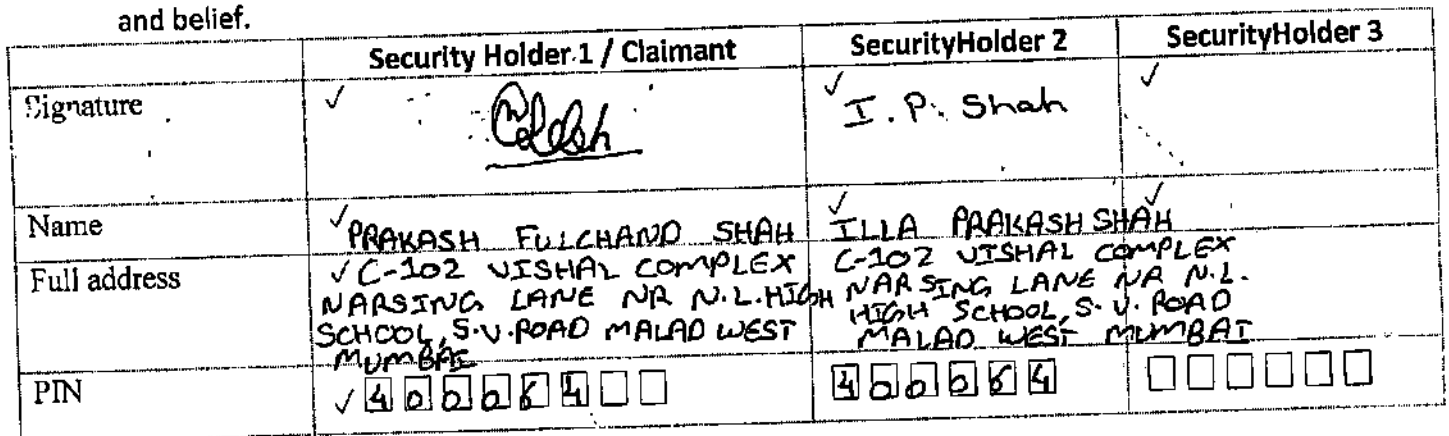 and belief.
Security Holder 1 / Claimant SecurityHolder 2 SecurityHolder 3
Signature ✓ ✓ I. P. Shah ✓
Name ✓ PRAKASH FULCHAND SHAH ✓ ILLA PRAKASH SHAH ✓
Full address ✓ C-102 VISHAL COMPLEX
NARSING LANE NR N.L. HIGH
SCHOOL, S.V. ROAD MALAD WEST
MUMBAI
C-102 VISHAL COMPLEX
NARSING LANE NR N.L.
HIGH SCHOOL, S.V. ROAD
MALAD WEST MUMBAI
PIN ✓ 400064 400064